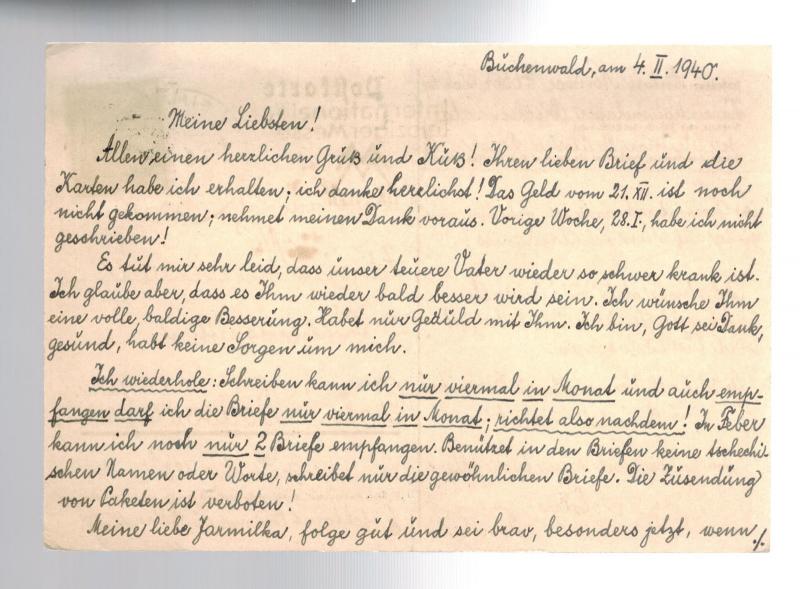 Buchenwald, am 4. II. 1940.
Meine Liebsten!
Allen einen herzlichen Gruß und Kuß! Ihren lieben Brief und die
Karten habe ich erhalten; ich danke herzlichst! Das Geld vom 21. XII. ist noch
nicht gekommen; nehmet meinen Dank voraus. Vorige Woche, 28. I., habe ich nicht
geschrieben!
Es tut mir sehr leid, dass unser teuere Vater wieder so schwer krank ist.
Ich glaube aber, dass es Ihm wieder bald besser wird sein. Ich wünsche Ihm
eine volle, baldige Besserung. Habet nur Geduld mit Ihm. Ich bin, Gott sei Dank,
gesund, habt keine Sorgen um mich.
Ich wiederhole: Schreiben kann ich nur viermal in Monat und auch emp-
fangen darf ich die Briefe nur viermal in Monat; richtet also nachdem! In Feber
kann ich noch nur 2 Briefe empfangen. Benützet in den Briefen keine tschechi-
schen Namen oder Worte, schreibet nur die gewöhnlichen Briefe. Die Zusendung
von Paketen ist verboten!
Meine liebe Jarmilka, folge gut und sei brav, besonders jetzt, wenn ./.